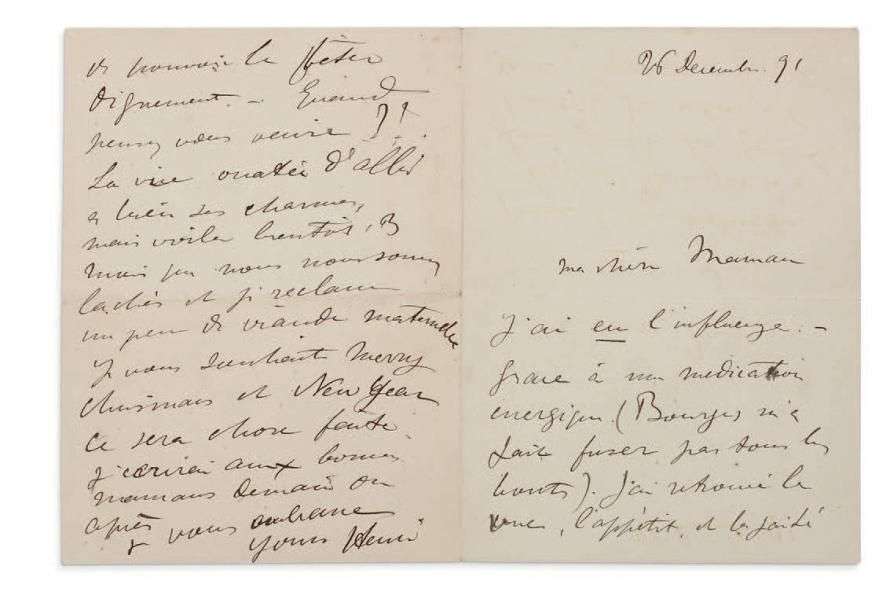 26 Decembre 91
ma chère Maman
J'ai eu l'influenza. –
grace à une medication
energique (Bourges m'a
fait fuser par tous les
bouts). J'ai retrouvé le
, l'appétit, et la gaité
de pouvoir le fêter
dignement. – Quand
pensez vous venir ?!
La vie ouatée d'Albi
a bien ses charmes,
mais voila bientôt, 3
mois que nous nous sommes
lachés et je reclame
un peu de viande maternelle
Je vous souhaite Merry
Chrismas et New Year
Ce sera chose faite
J'écrirai aux bonnes
mamans demain ou
après
& vous embrasse
Yours Henri